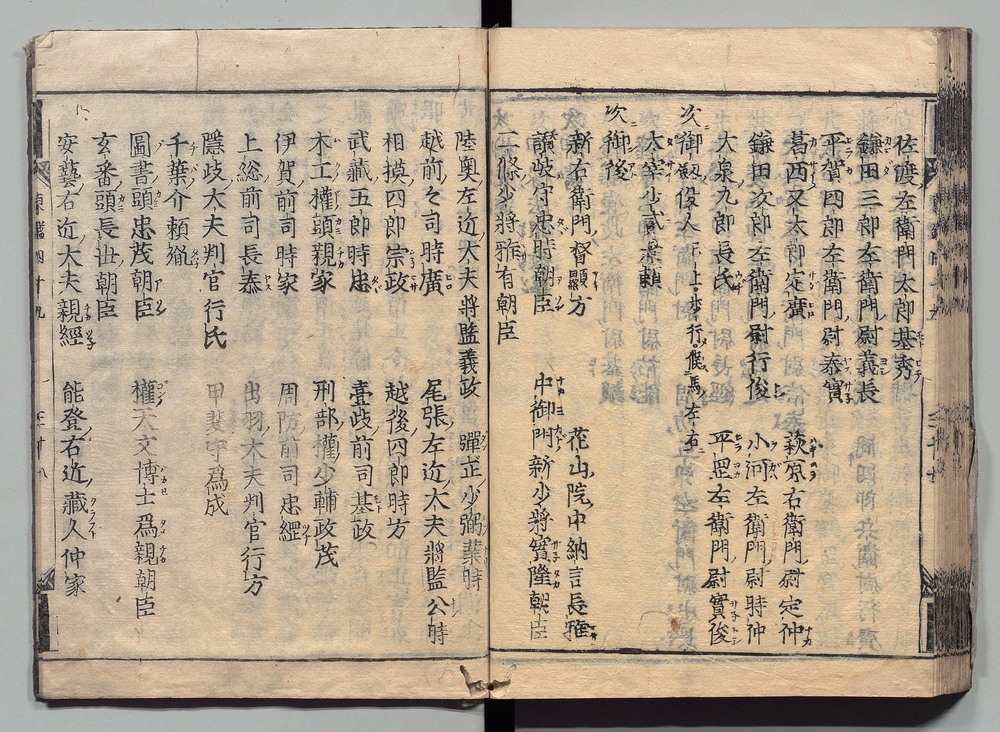 佐渡左衛門太郎基秀
鎌田三郎左衛門尉義長
平賀四郎左衛門尉泰實
葛西又太郎定廣 萩原右衛門尉定仲
鎌田次郎左衛門尉行俊 小河左衛門尉時仲
大泉九郎長氏 平罡左衛門尉實俊
次御
太宰少貳景頼
次御後
新右衛門督顯方 花山院中納言長雅
讃岐守忠時朝臣 中御門新少將實隆朝臣
二條少將雅有朝臣
陸奥左近大夫將監義政 彈正少弼業時
越前々司時廣 尾張左近大夫將監公時
相摸四郎宗政 越後四郎時方
武藏五郎時忠 壹歧前司基政
木工權頭親家 刑部權少輔政茂
伊賀前司時家 周防前司忠經
上総前司長泰 出羽大夫判官行方
隱歧大夫判官行氏 甲斐守爲成
千葉介頼胤
圖書頭忠茂朝臣 權天文博士爲親朝臣
玄番頭長世朝臣
安藝右近大夫親經 能登右近藏人仲家